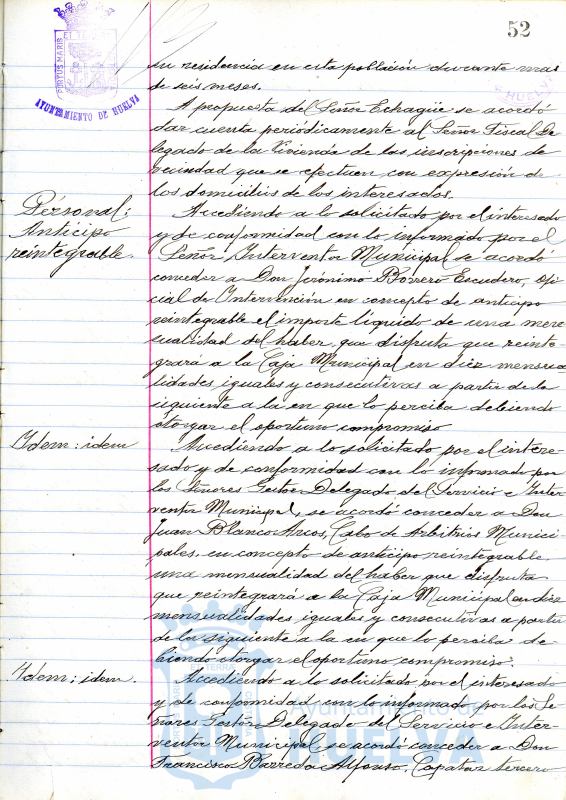 52
AYUNTAMIENTO DE HUELVA
su residencia en esta población durante mas
de seis meses.
A propuesta del Señor Echagüe se acordó
dar cuenta periódicamente al Señor Fiscal De-
legado de la Vivienda de las inscripciones de
vecindad que se efectuen con expresión de
los domicilios de los interesados.
Personal:
Anticipo
reintegrable.
Accediendo a lo solicitado por el interesado
y de conformidad con lo informado por el
Señor Interventor Municipal se acordó
conceder a Don Jerónimo Borrero Escudero, Ofi-
cial de Intervención en concepto de anticipo
reintegrable el importe líquido de una men-
sualidad del haber que disfruta que reinte-
grará a la Caja Municipal en diez mensua-
lidades iguales y consecutivas a partir de la
siguiente a la en que lo perciba debiendo
otorgar el oportuno compromiso
Idem: idem
Accediendo a lo solicitado por el intere-
sado y de conformidad con lo informado por
los Señores Gestor Delegado del Servicio e Inter-
ventor Municipal, se acordó conceder a Don
Juan Blanco Arcos, Cabo de Arbitrios Munici-
pales, en concepto de anticipo reintegrable
una mensualidad del haber que disfruta
que reintegrará a la Caja Municipal en diez
mensualidades iguales y consecutivas a partir
de la siguiente a la en que lo perciba de-
biendo otorgar el oportuno compromiso.
Idem: idem.
Accediendo a lo solicitado por el interesado
y de conformidad con lo informado por los Se-
ñores Gestor Delegado del Servicio e Inter-
ventor Municipal se acordó conceder a Don
Francisco Barreda Alfonso, Capataz tercero
Ayuntamiento de
HUELVA